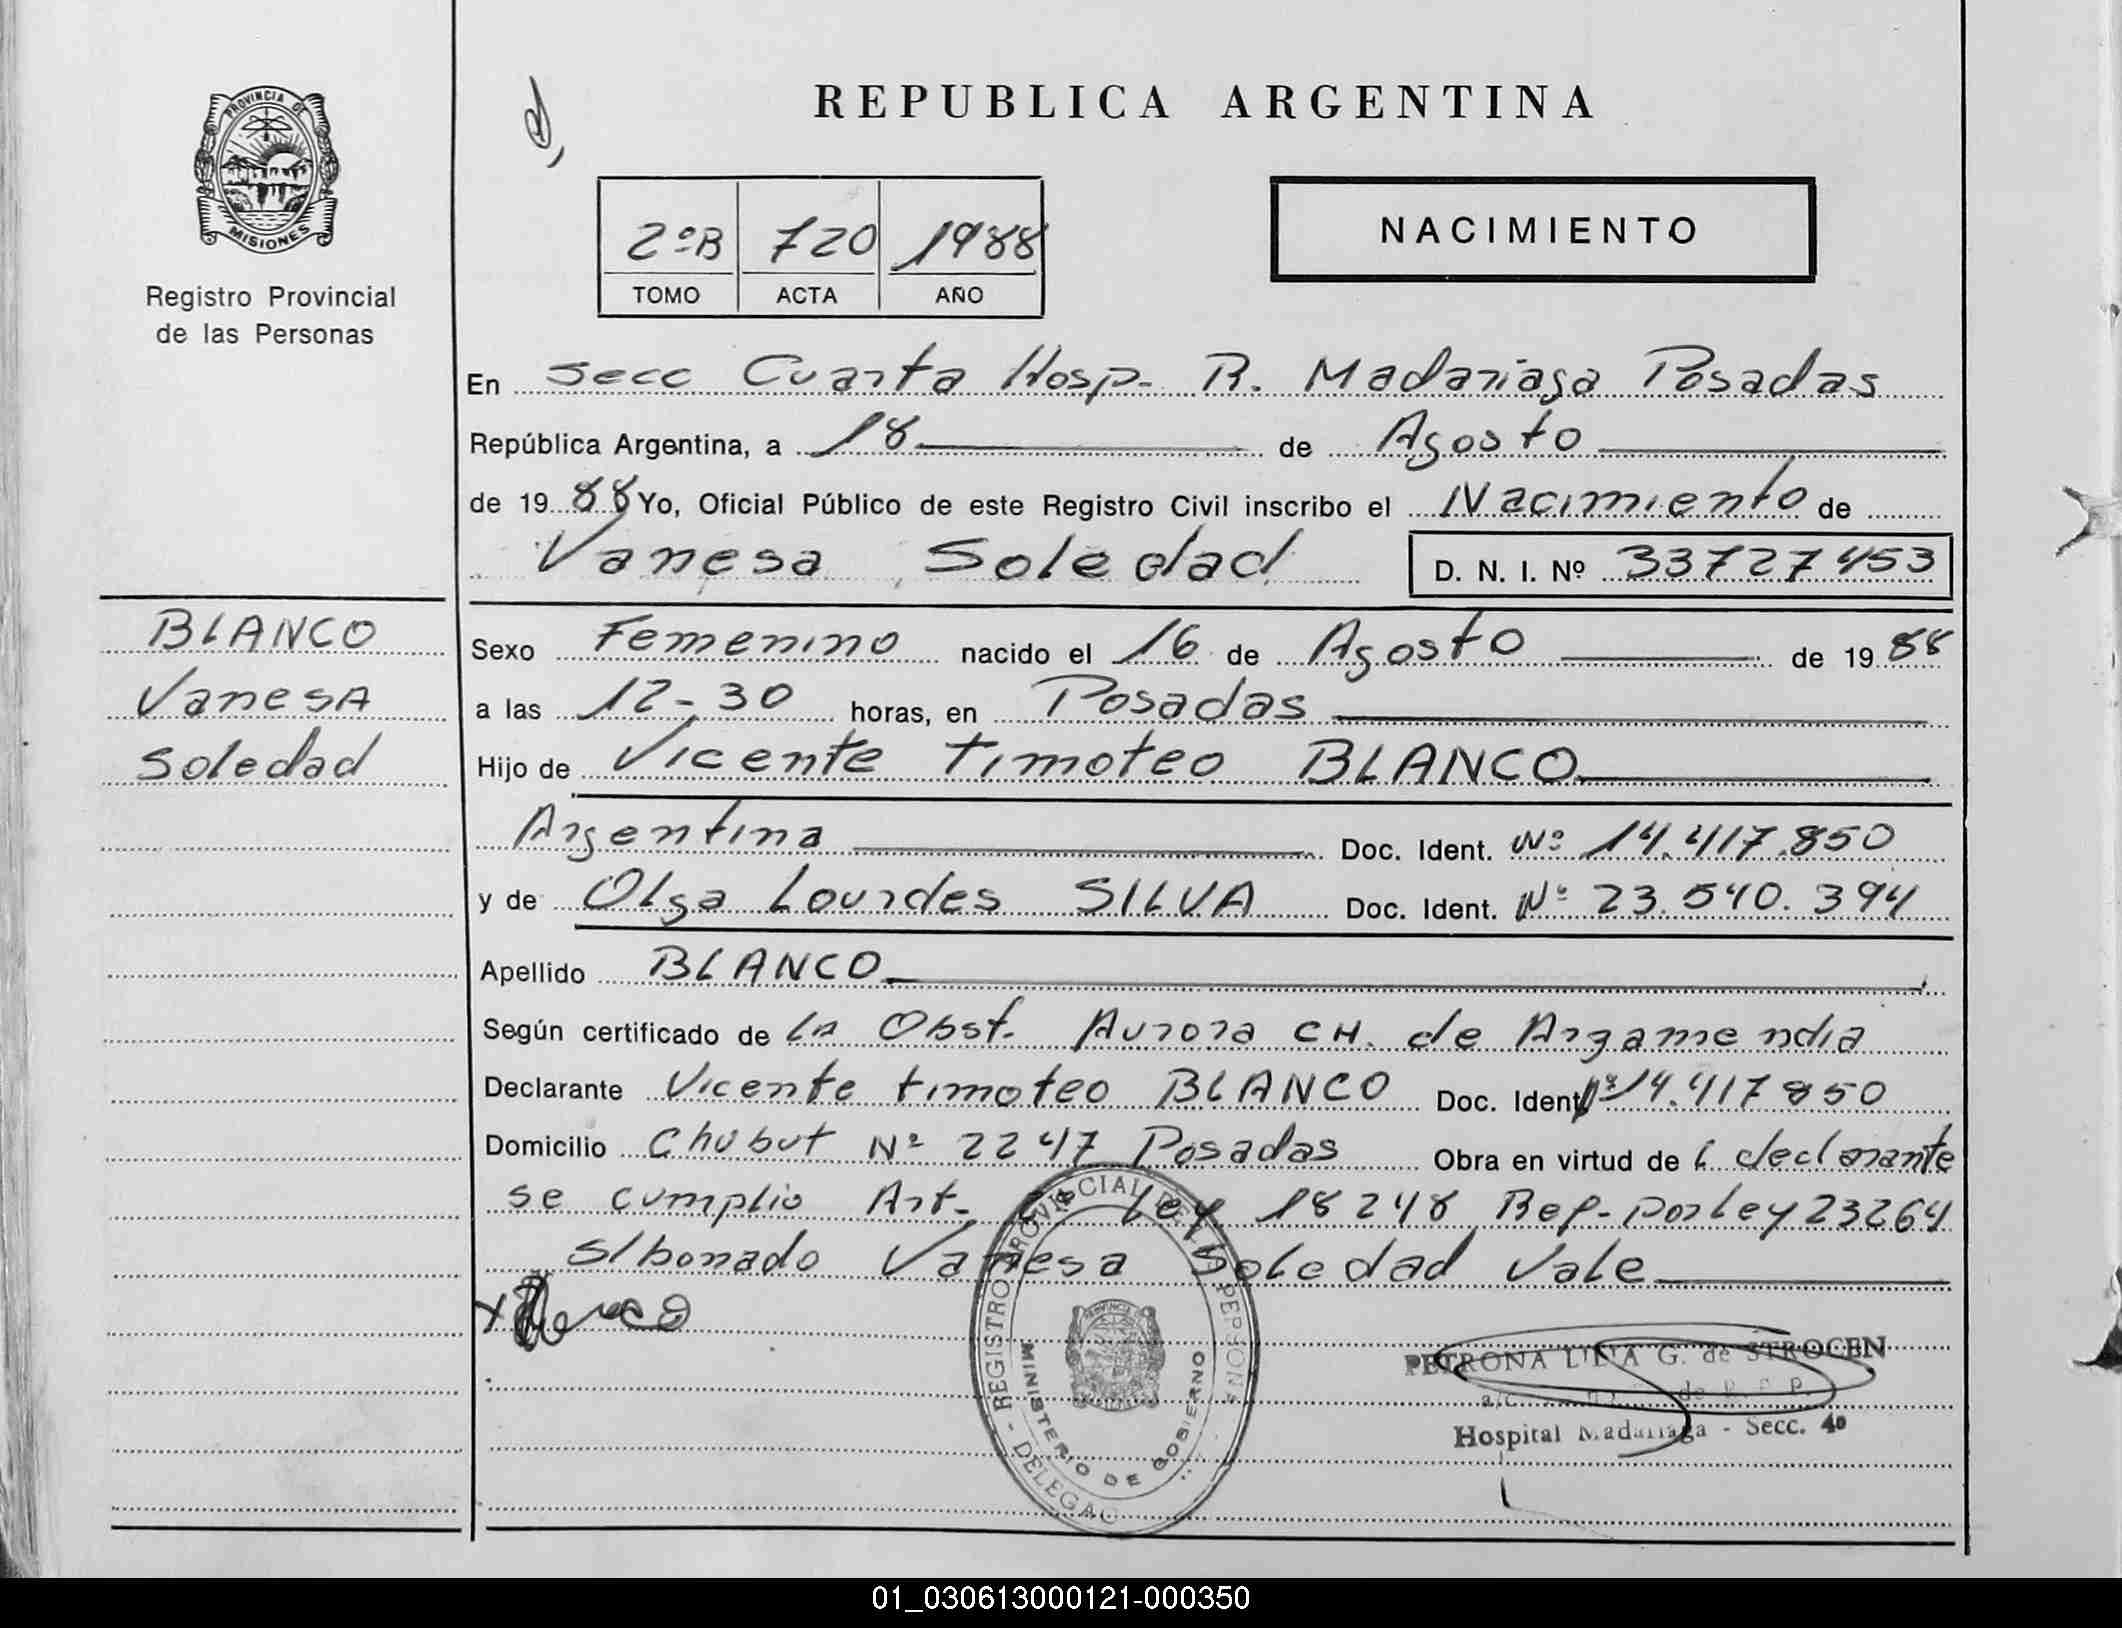 PROVINCIA DE
MISIONES
Registro Provincial
de las Personas
BLANCO
Vanesa
Soledad
REPUBLICA ARGENTINA
2ºB 720 1988
TOMO ACTA AÑO
NACIMIENTO
En Secc Cuarta Hosp. R. Madariaga Posadas
República Argentina, a 18 de Agosto
de 1988 Yo, Oficial Público de este Registro Civil inscribo el Nacimiento de
Vanesa Soledad D. N. I. Nº 33727453
Sexo Femenino nacido el 16 de Agosto de 1988
a las 12-30 horas, en Posadas
Hijo de Vicente Timoteo BLANCO
Argentina Doc. Ident. Nº 14.417.850
y de Olga Lourdes SILVA Doc. Ident. Nº 23.540.394
Apellido BLANCO
Según certificado de la Obst. Aurora CH. de Argamendia
Declarante Vicente Timoteo BLANCO Doc. Ident Nº 14.417850
Domicilio Chubut Nº 2247 Posadas Obra en virtud de declarante
se cumplio Art. Ley 18248 Ref. por ley 23264
S/bonado Vanesa Soledad Vale
Blanco
REGISTRO PROVINCIAL DE LAS PERSONAS - DELEGAC
MINISTERIO DE GOBIERNO
PETRONA LILIA G. de STROCEN
a/c de R. P. P.
Hospital Madariaga - Secc. 4º
01_030613000121-000350